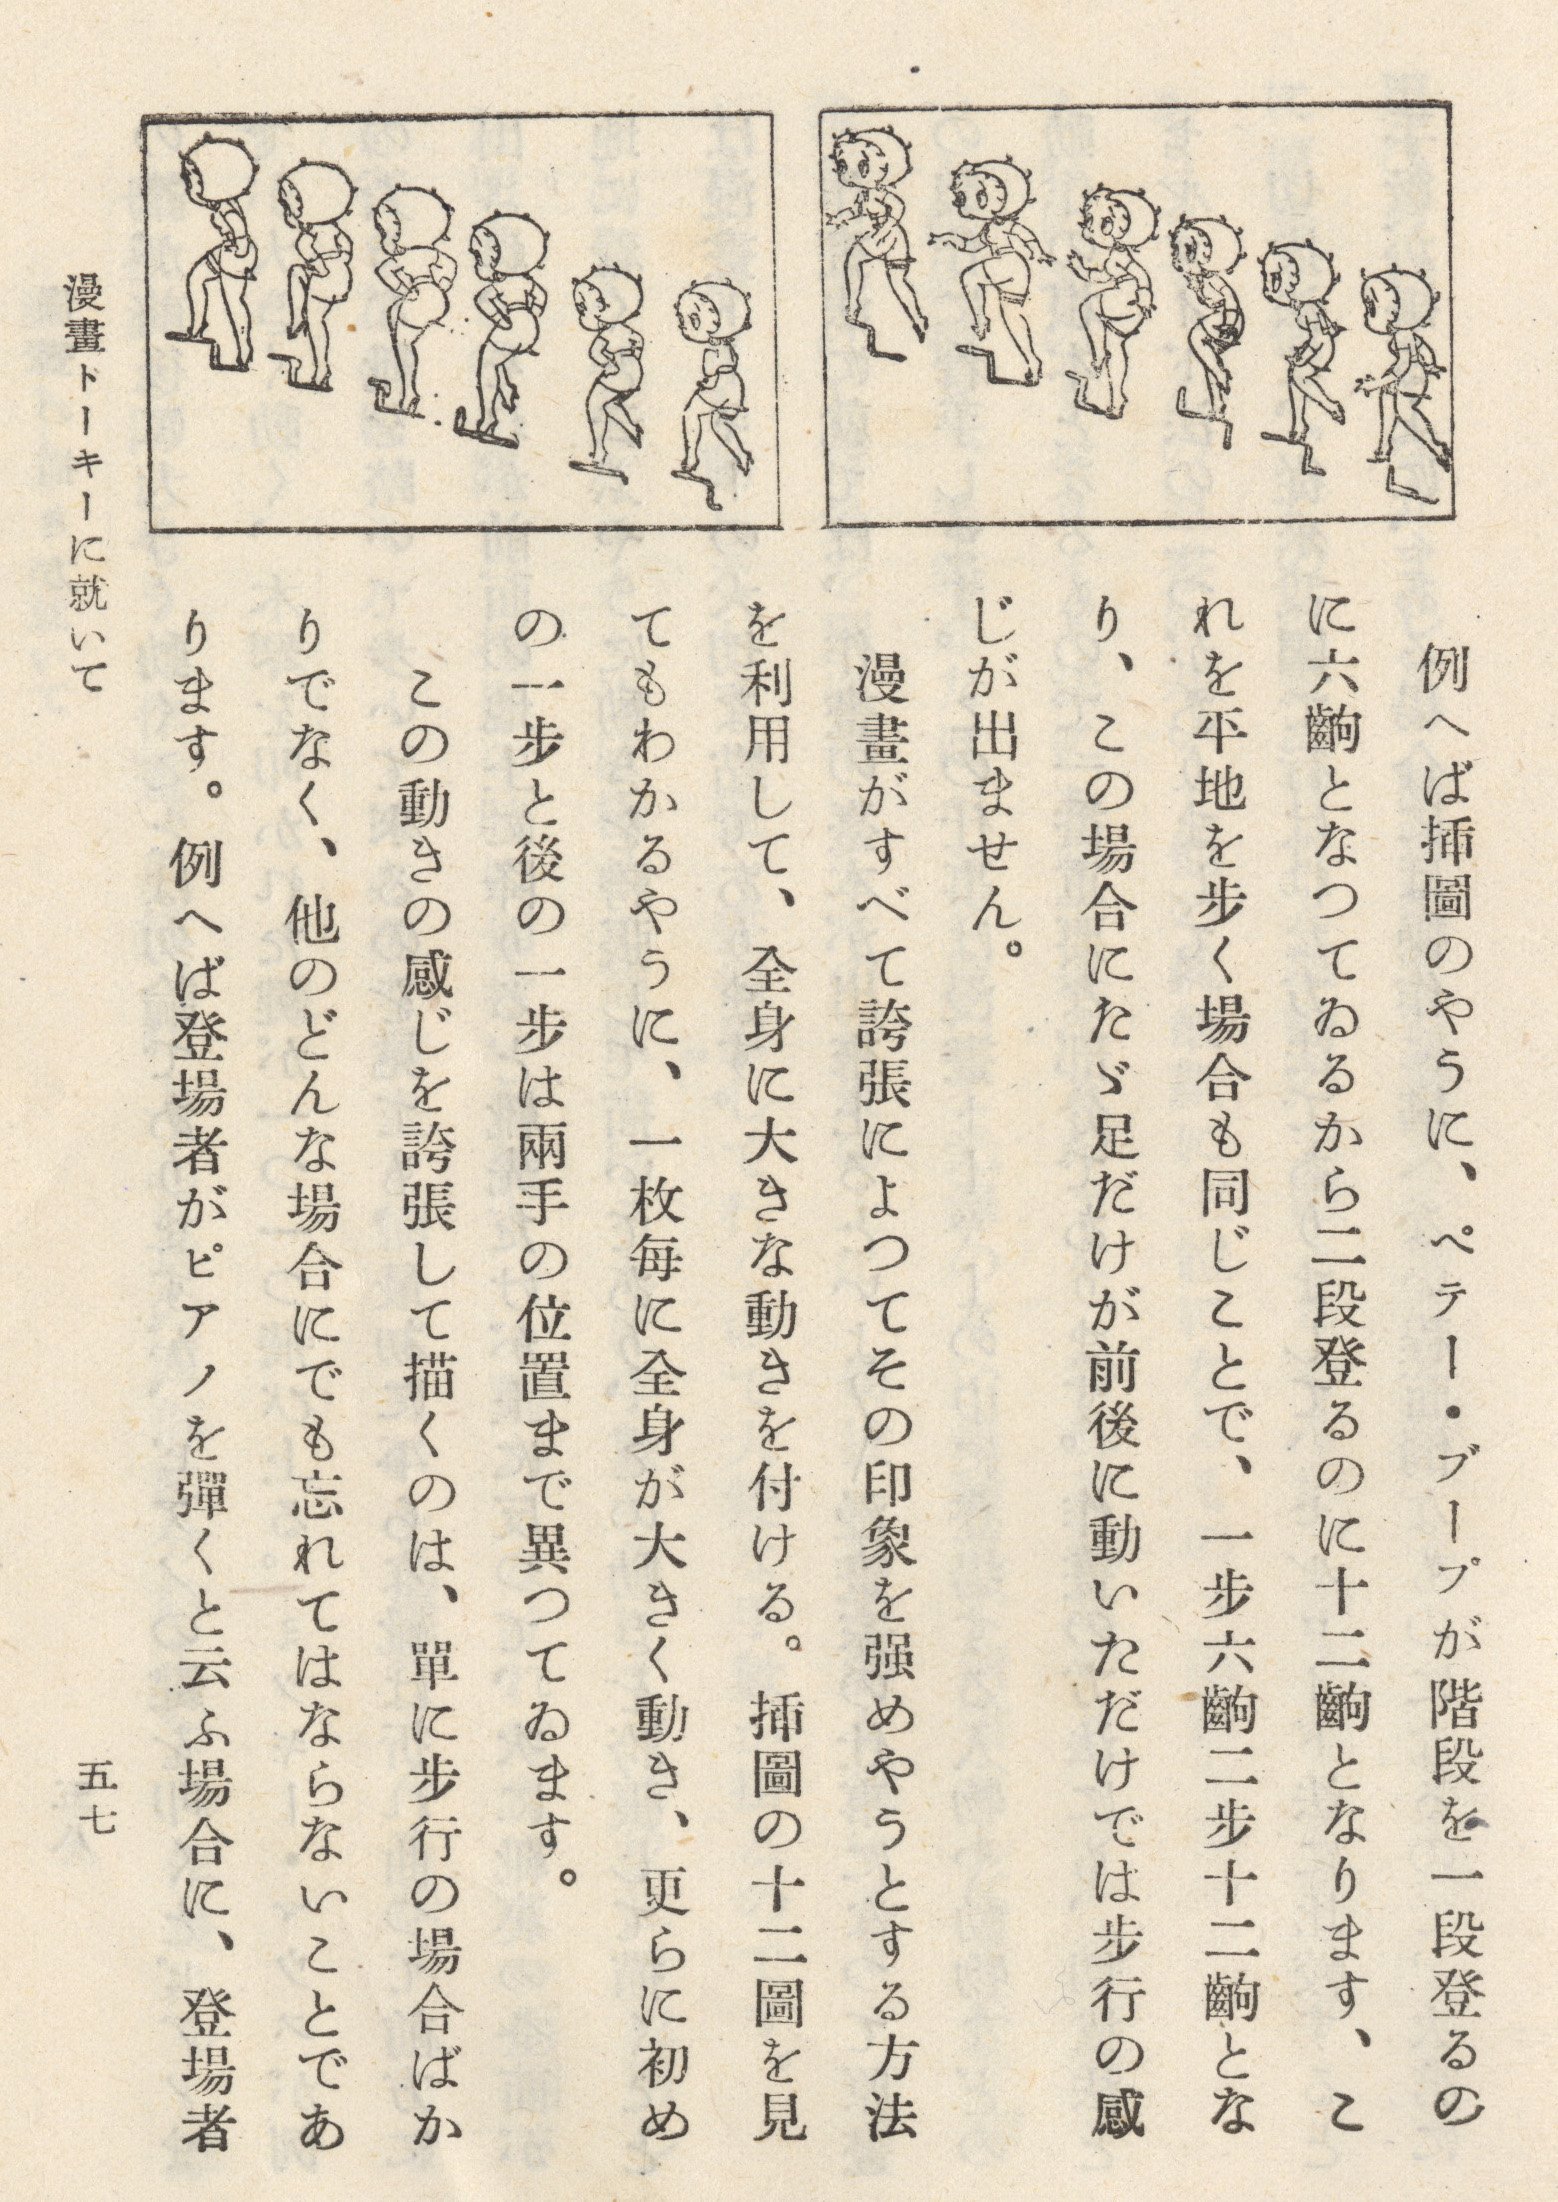 例へば挿圖のやうに、ペテー・ブープが階段を一段登るの
に六齣となつてゐるから二段登るのに十二齣となります、こ
れを平地を歩く場合も同じことで、一歩六齣二歩十二齣とな
り、この場合にたゞ足だけが前後に動いただけでは歩行の感
じが出ません。
漫畫がすべて誇張によつてその印象を强めやうとする方法
を利用して、全身に大きな動きを付ける。挿圖の十二圖を見
てもわかるやうに、一枚毎に全身が大きく動き、更らに初め
の一歩と後の一歩は兩手の位置まで異つてゐます。
この動きの感じを誇張して描くのは、單に歩行の場合ばか
りでなく、他のどんな場合にでも忘れてはならないことであ
ります。例へば登場者がピアノを彈くと云ふ場合に、登場者
漫畫トーキーに就いて
五七